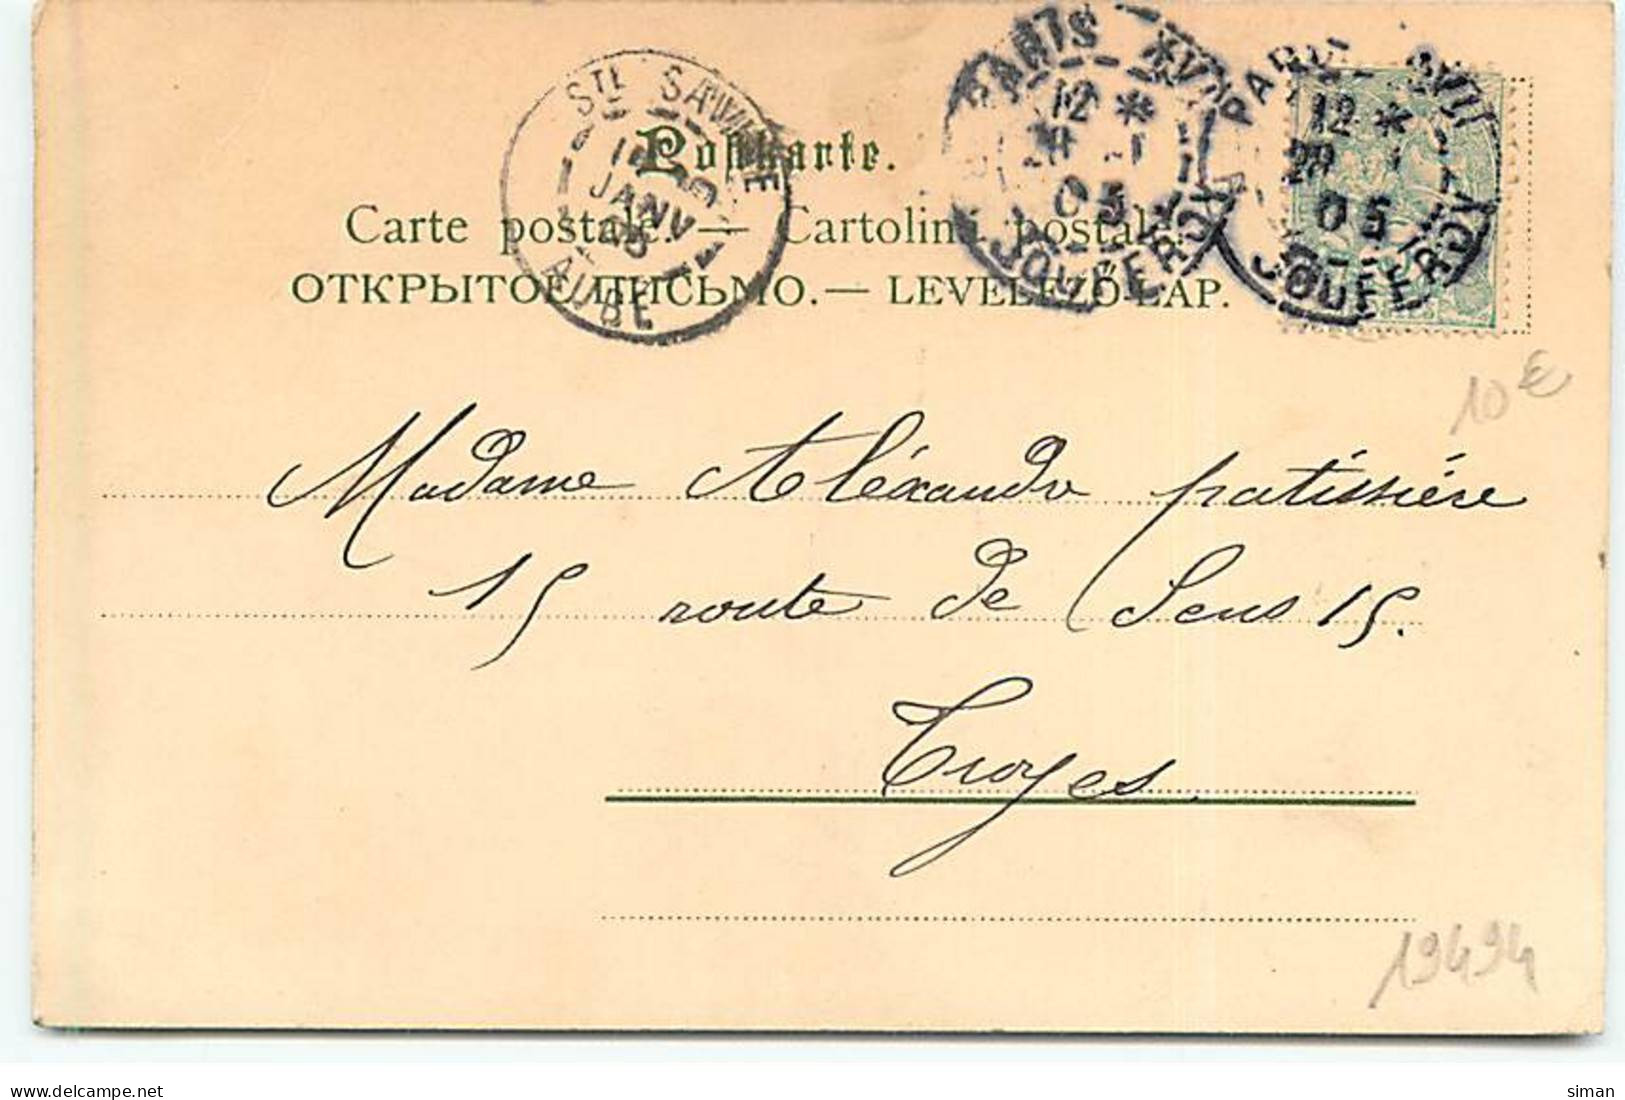 STE SAVINE
JANV
05
AUBE
PARIS XVII
12 *
05
JOUFFROY
PARIS XVII
12 *
28 1
05
JOUFFROY
Postkarte.
Carte postale. — Cartolina postale.
ОТКРЫТОЕ ПИСЬМО. — LEVELEZŐ-LAP.
10 €
Madame Aléxandre patissiére
15 route de Sens 15.
Troyes.
19494
delcampe.net
siman